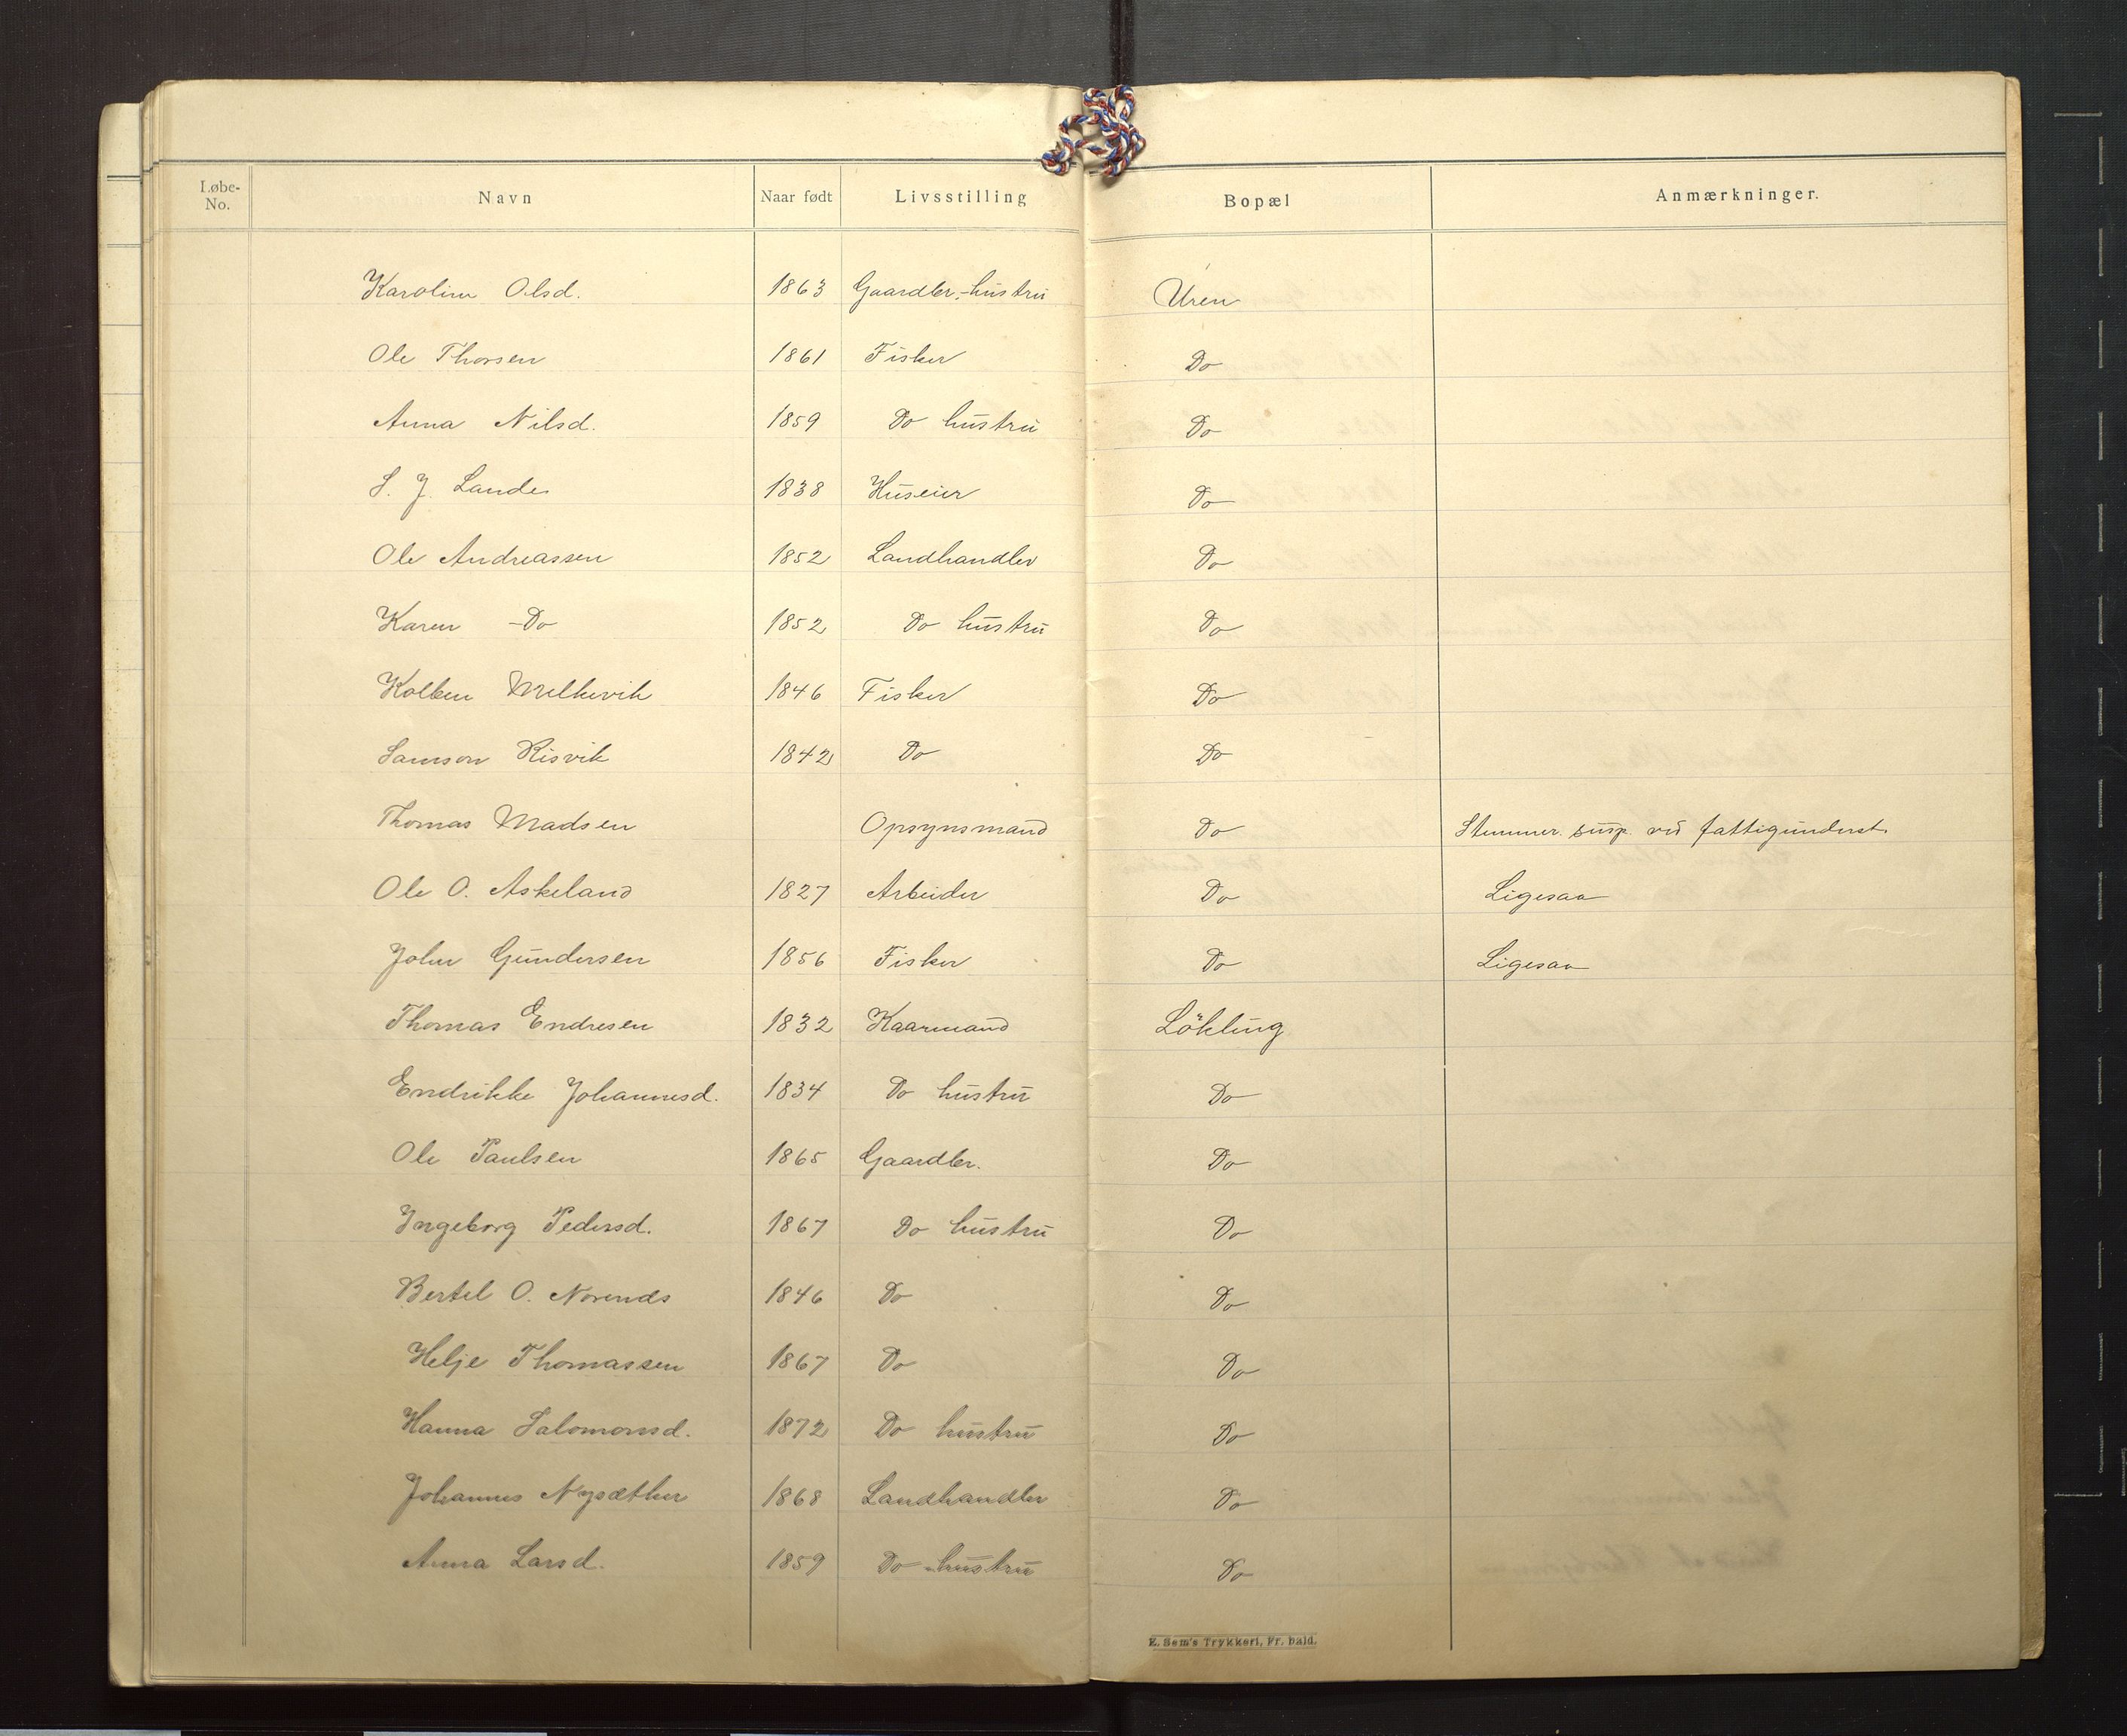 Løbe-No. Navn Naar født Livsstilling Bopæl Anmærkninger.
Karolin Olsd. 1863 Gaardbr.-hustru Uren
Ole Thorsen 1861 Fisker Do
Anna Nilsd. 1859 Do hustru Do
S. J. Lande 1838 Huseier Do
Ole Andreassen 1852 Landhandler Do
Karen Do 1852 Do hustru Do
Kolben Melkevik 1846 Fisker Do
Samson Risvik 1842 Do Do
Thomas Madsen Opsynsmand Do Stemmer. susp. ved fattigunderst.
Ole O. Askeland 1827 Arbeider Do Ligesaa
John Gundersen 1856 Fisker Do Ligesaa
Thomas Endresen 1832 Kaarmand Lökling
Endrikke Johannesd. 1834 Do hustru Do
Ole Paulsen 1865 Gaardbr. Do
Ingeborg Pedersd. 1867 Do hustru Do
Bertel O. 1846 Do Do
Helje Thomassen 1867 Do Do
Hanna Salomonsd. 1872 Do hustru Do
Johannes Nysæther 1868 Landhandler Do
Anna Larsd. 1859 Do hustru Do
E. Sem's Trykkeri, Fr.hald.